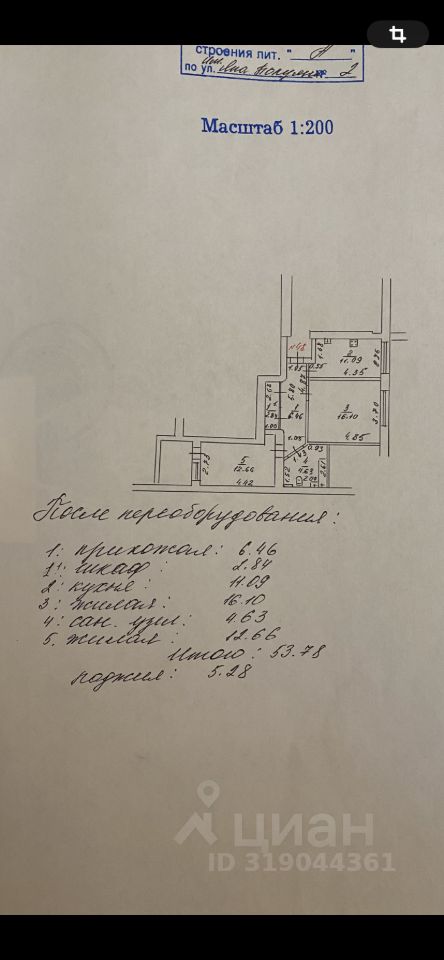 строения лит. " А "
по ул. 2
Масштаб 1:200
1.05
0.55
1.08
2
11.09
4.35
5.80
4.87
1
6.46
3
16.10
4.85
3.70
2.68
1.00
1.05
0.93
5
12.66
4.42
2.73
1.52
4
4.63
2.09
2.61
После переоборудования:
1: прихожая: 6.46
1': шкаф : 2.84
2: кухня : 11.09
3: жилая: 16.10
4: сан. узел: 4.63
5. жилая : 12.66
Итого : 53.78
лоджия: 5.28
циан
ID 319044361